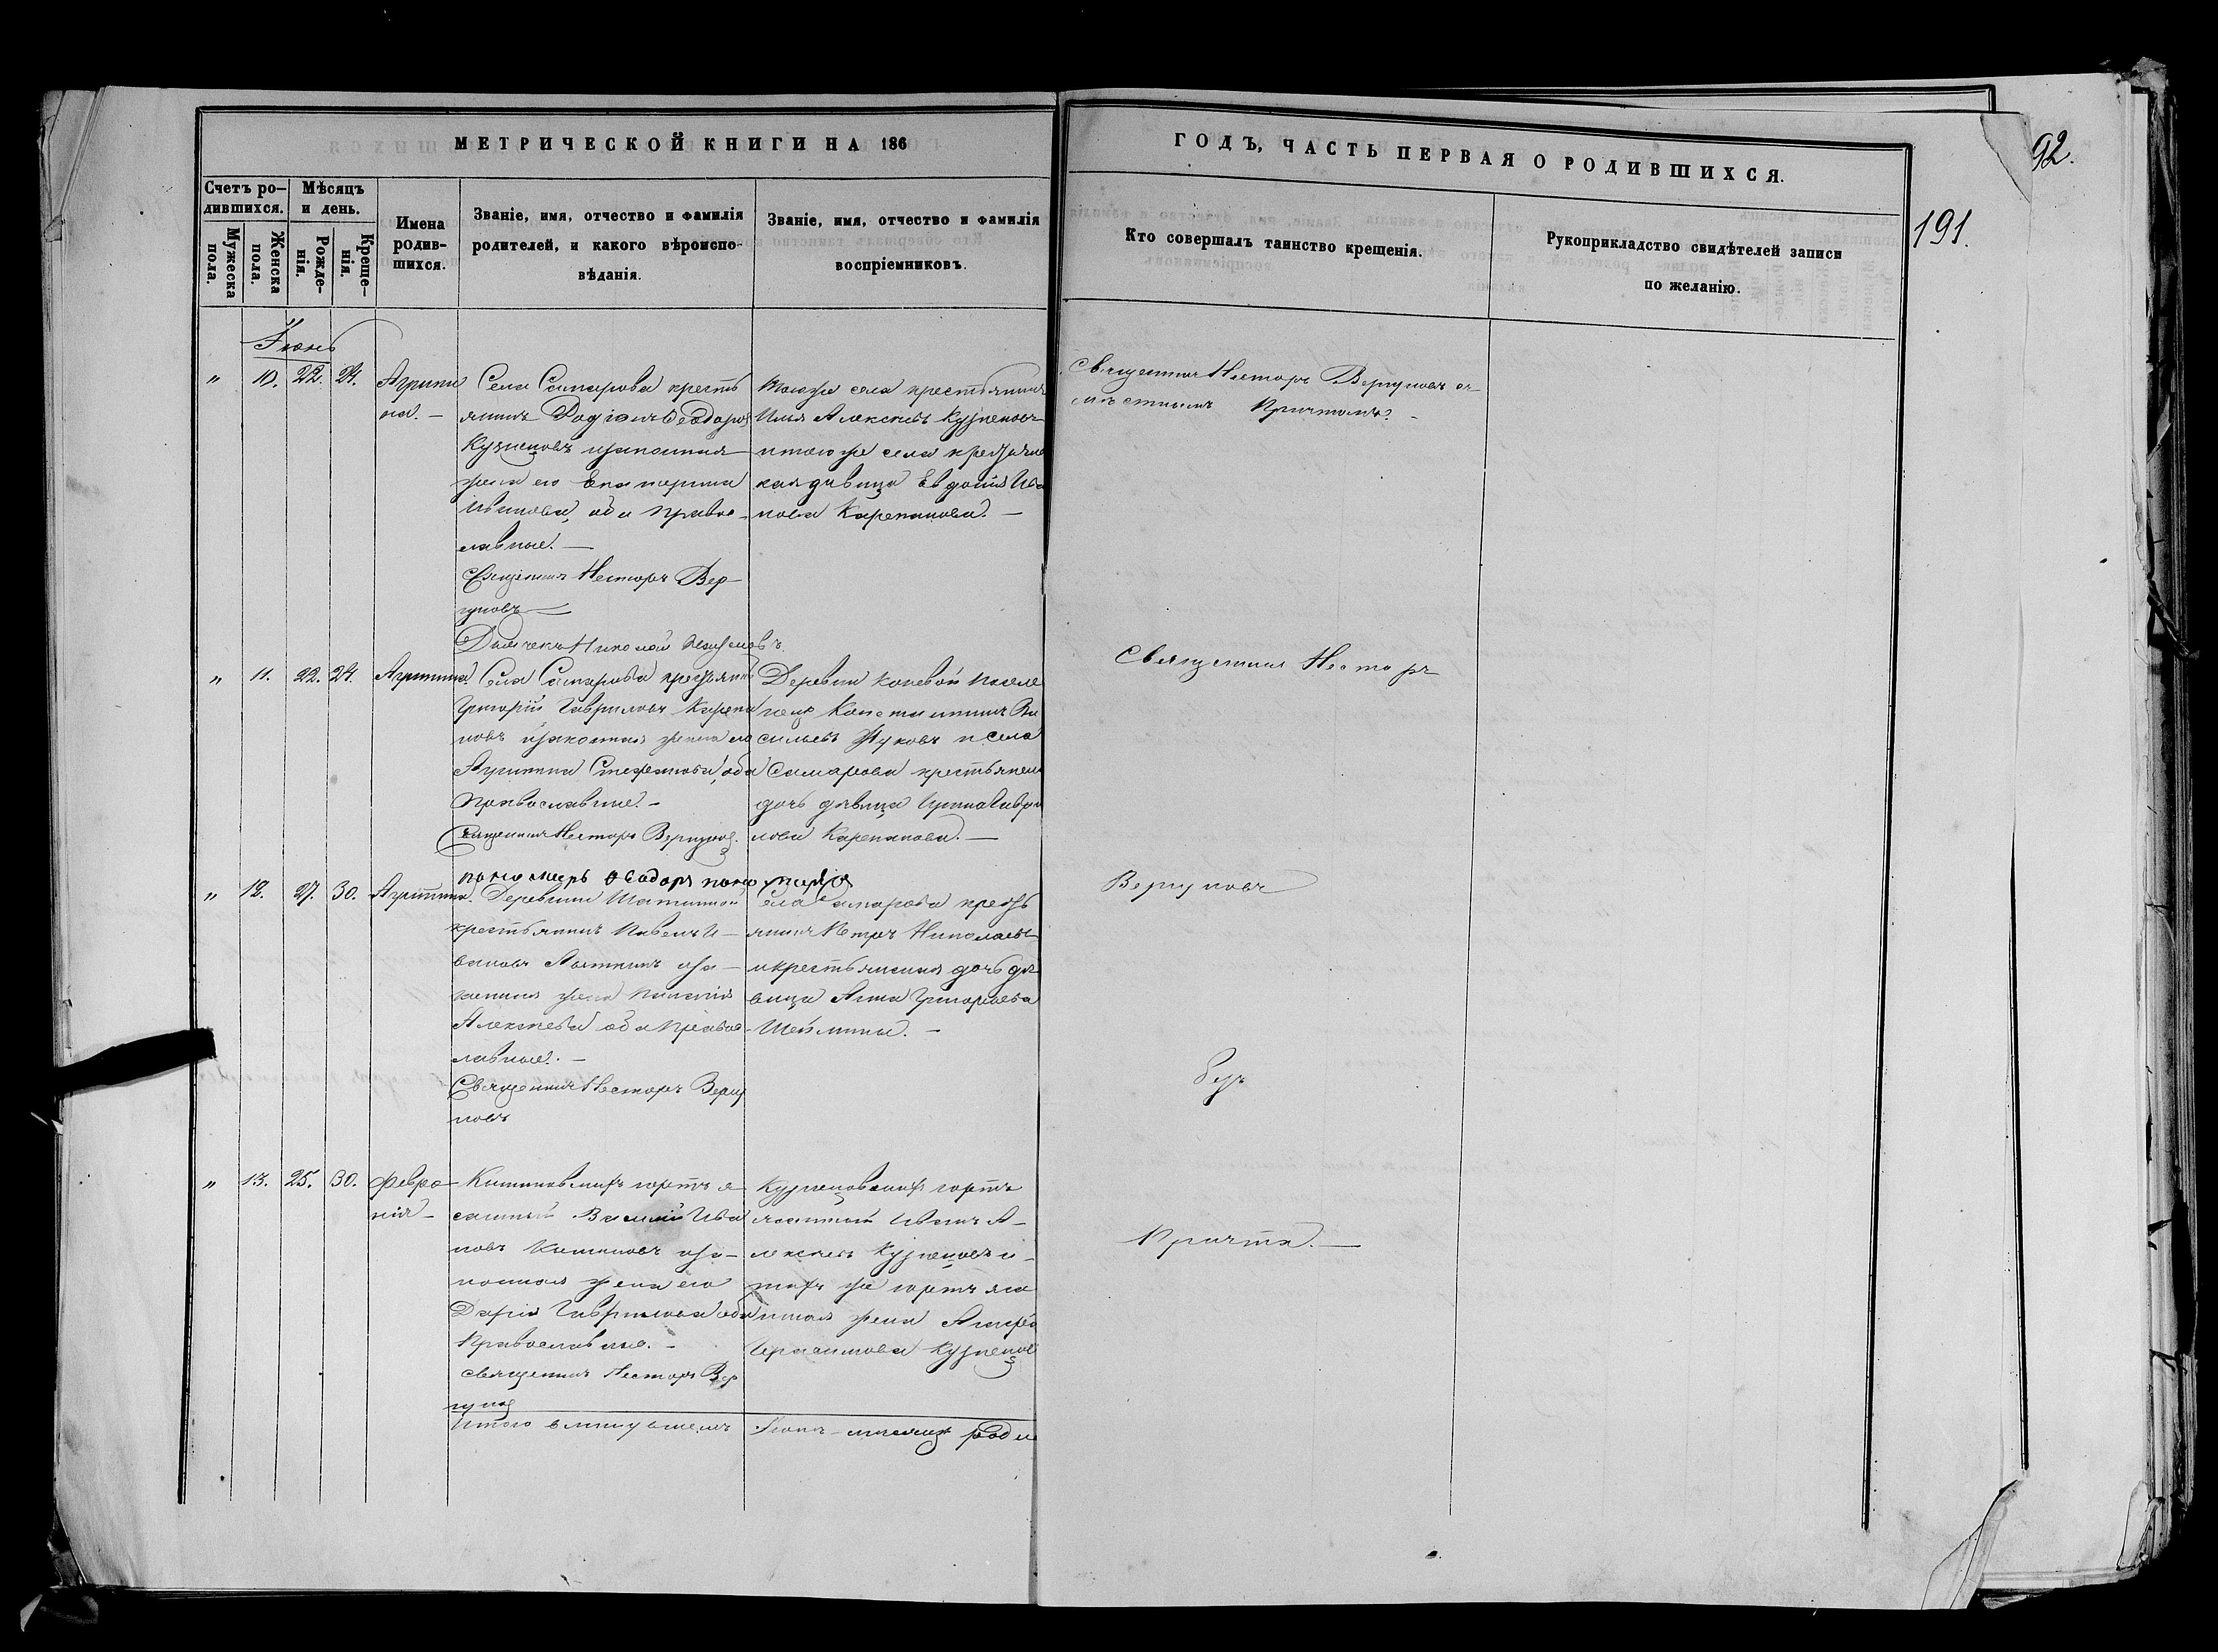 МЕТРИЧЕСКОЙ КНИГИ НА 186
ГОДЪ, ЧАСТЬ ПЕРВАЯ О РОДИВШИХСЯ.
92.
191.
Счетъ ро-
дившихся.
Мужеска пола.
Женска пола.
Мѣсяцъ
и день.
Рожде-
нія.
Креще-
нія.
Имена
родив-
шихся.
Званіе, имя, отчество и фамилія
родителей, и какого вѣроиспо-
вѣданія.
Званіе, имя, отчество и фамилія
воспріемниковъ.
Кто совершалъ таинство крещенія.
Рукоприкладство свидѣтелей записи
по желанію.
Іюнь
" 10. 22. 24.
Агрипи
на. -
Села Самарова кресть
янинъ Родіонъ Ѳеодоровъ
Кузнецовъ изаконная
жена его Екатерина
Иванова, оба Правос-
лавные. -
Священникъ Несторъ Вер-
гуновъ
Дьячекъ Николай
Тогоже села крестьянинъ
Илья Алексѣевъ Кузнецовъ
и тогоже села крестьянс
кая дѣвица Евдокія Ива
нова Карепанова. -
Священникъ Несторъ Вергуновъ съ
мѣстнымъ Причтомъ. -
" 11. 22. 24.
Агрипина
Села Самарова крестьянинъ
Григорій Гавриловъ Карепа
новъ изаконная жена его
Агрипина Стефанова, оба
Православные. -
Священникъ Несторъ Вергуновъ.
пономарь Ѳеодоръ
Деревни Коневой поселе
нецъ Константинъ Ва
сильевъ Жуковъ и села
Самарова крестьянская
дочь дѣвица Ирина Гаври
лова Карепанова. -
Священникъ Несторъ
" 12. 27. 30.
Агрипина.
Деревни Шапшиной
крестьянинъ Павелъ И-
вановъ иза-
конная жена
Алексѣева оба Правос-
лавные. -
Священникъ Несторъ Вергу
новъ
Села Самарова кресть
янинъ Петръ Николаевъ
и крестьянская дочь дѣ
вица Анна Григорьева
Шеймина. -
Вергуновъ
безъ
" 13. 25. 30.
Февро-
нія -
юртъ я-
сашный Василій Ива
новъ иза-
конная жена его
Дарія Гаврилова оба
Православные. -
Священникъ Несторъ Вер
гуновъ
Кузнецовскихъ юртъ
ясашный Иванъ А-
лексѣевъ Кузнецовъ и
тѣхъ же юртъ яса
шная жена
Кузнецов
Причта. -
Итого въ минувшемъ Іюнѣ мѣсяцѣ роди